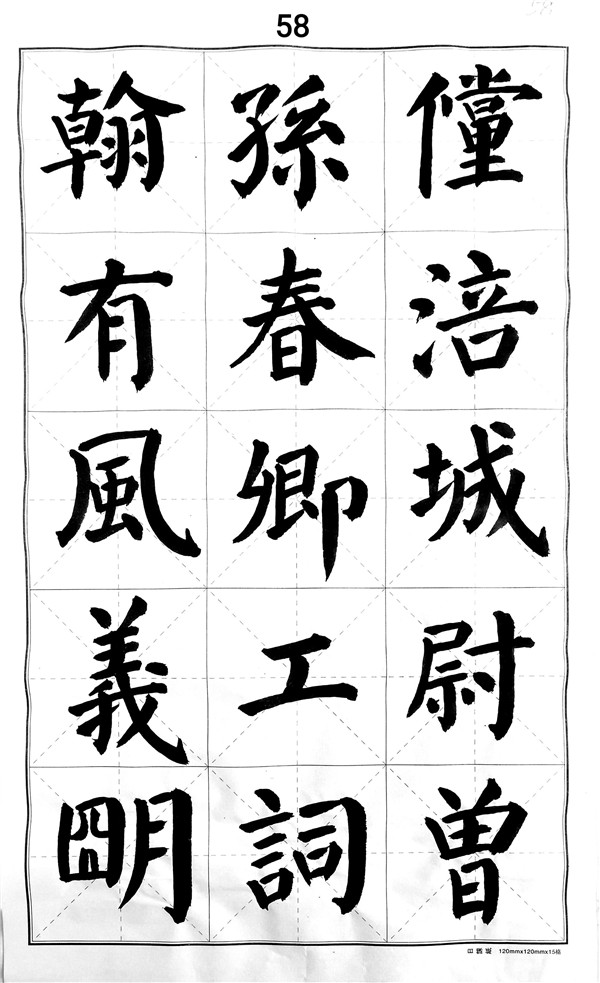 58
儻涪城尉曾
孫春卿工詞
翰有風義朙
120mmx120mmx15格